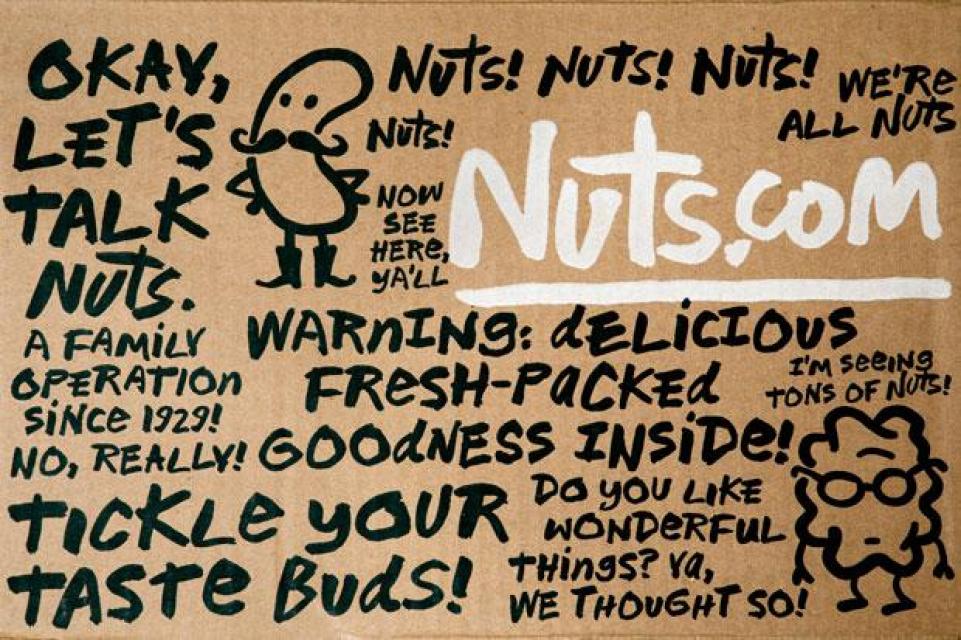 OKAY,
LET'S
TALK
NUTS.
A FAMILY
OPERATION
SINCE 1929!
NO, REALLY!
TICKLE YOUR
TASTE BUDS!
NUTS! NUTS! NUTS!
NUTS!
NOW
SEE
HERE,
YA'LL
WE'RE
ALL NUTS
Nuts.com
WARNING: DELICIOUS
FRESH-PACKED
GOODNESS INSIDE!
I'M SEEING
TONS OF NUTS!
DO YOU LIKE
WONDERFUL
THINGS? YA,
WE THOUGHT SO!